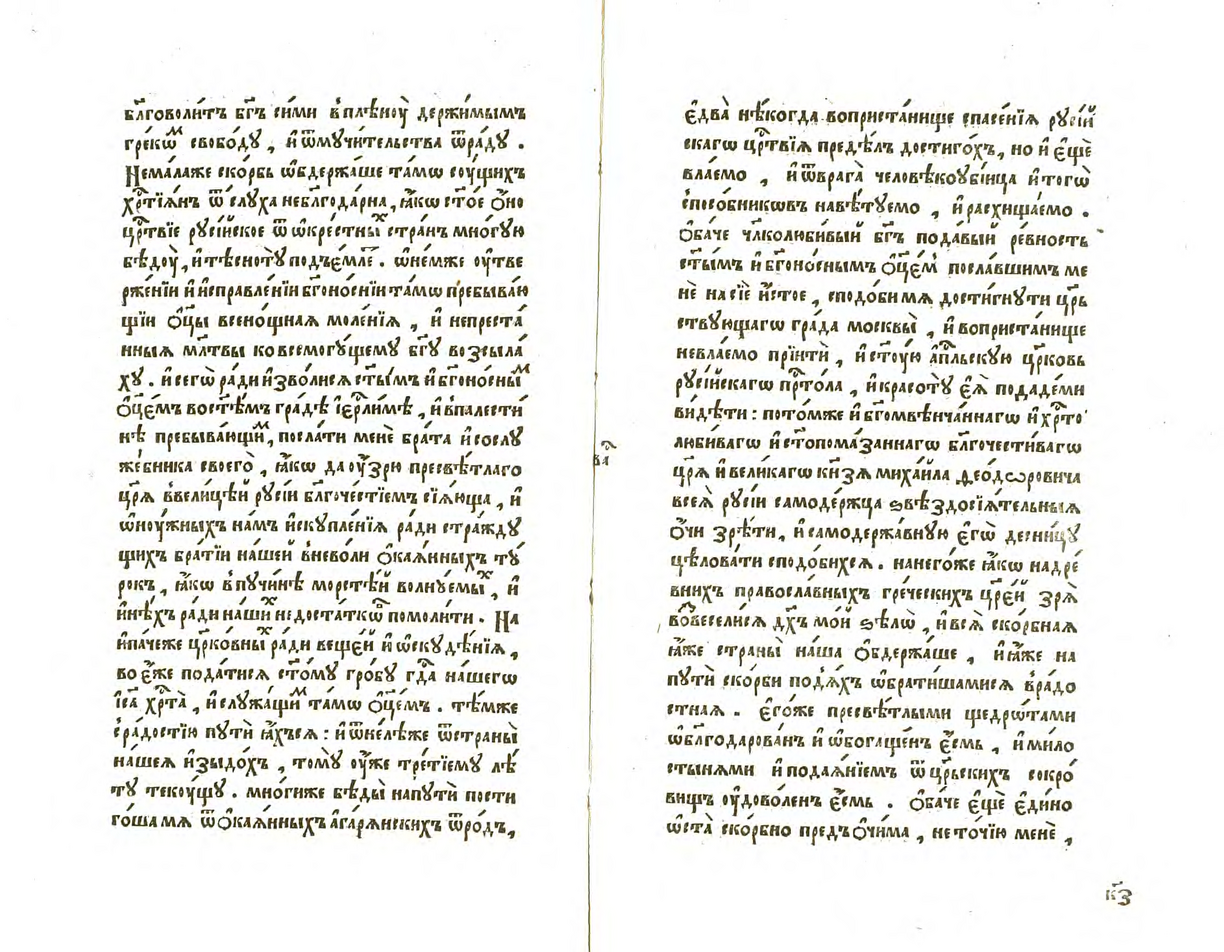 бл҃говоли́тъ бг҃ъ си́ми в̾плѣ́ноу̀ держи́мымъ
гре́кѡⷨ свобо́дꙋ , и҆ ѿмꙋчи́тельства ѿра́дꙋ .
Нема́лаже ско́рбь ѡ҆бдержа́ше та́мѡ соу́щихъ
хрⷭ҇тїѧ́нъ ѿ слꙋ́ха небл҃года́рна , ꙗ҆́кѡ ст҃о́е ѻ҆́но
црⷭ҇твїе рꙋсі́йское ѿ ѡ҆кре́стныⷯ стра́нъ мно́гꙋю
бѣдоу̀ , и҆ тѣсно́тꙋ подъе́млеⷮ . ѡ҆не́мже оу҆тве
рже́нїи и҆ и҆справле́нїи бг҃оно́снїи та́мѡ пребыва́ю
щїи ѻ҆ц҃ы̀ всено́щнаѧ моле́нїѧ , и҆ непреста́
нныѧ мл҃твы ковсемогꙋ́щемꙋ бг҃ꙋ возсыла́
хꙋ . и҆ сегѡ̀ ра́ди и҆зво́лисѧ ст҃ы́мъ и҆ бг҃оно́сныⷨ
ѻ҆ц҃е́мъ востѣ́мъ гра́дѣ і҆ерⷭ҇ли́мѣ , и҆ впалести́
нѣ пребыва́ющиⷨ , посла́ти менѐ бра́та и҆ сослꙋ
же́бника своего̀ , ꙗ҆́кѡ да оу҆́зрю пресвѣ́тлаго
цр҃ѧ̀ в̾вели́цѣй рꙋсі́и бл҃гоче́стїемъ сїѧ́юща , и҆
ѡ҆ноу́жныхъ на́мъ и҆скꙋпле́нїѧ ра́ди стра́ждꙋ
щихъ бра́тїи на́шей в̾нево́ли ѻ҆каѧ́нныхъ тꙋ́
рокъ , ꙗ҆́кѡ в̾пꙋчи́нѣ морстѣ́й волнꙋ́емыⷯ , и҆
и҆нѣ́хъ ра́ди на́шиⷯ недоста́ткѡⷡ помоли́ти . На
и҆па́чеже цр҃ко́вныⷯ ра́ди веще́й и҆ ѡ҆скꙋдѣ́нїѧ ,
во є҆́же пода́тисѧ ст҃о́мꙋ гро́бꙋ гдⷭ҇а на́шегѡ
і҆и҃са хрⷭ҇та̀ , и҆ слꙋжа́щиⷨ та́мѡ ѻ҆ц҃е́мъ . тѣ́мже
с̾ра́достїю пꙋтѝ ꙗ҆́хъсѧ : и҆ ѿне́лѣже ѿстраны̀
на́шеѧ и҆зыдо́хъ , томꙋ̀ оу҆́же тре́тїемꙋ лѣ́
тꙋ текоу́щꙋ . мно́гиже бѣды̀ напꙋтѝ пости
го́ша мѧ ѿ ѻ҆каѧ́нныхъ а҆гарѧ́нскихъ ѿро́дъ ,
ва́
є҆два̀ нѣ́когда воприста́нище спасе́нїѧ рꙋсі́й
скагѡ црⷭ҇твїѧ предѣ́лъ достиго́хъ , но и҆ є҆щѐ
влае́мо , и҆ ѿврага̀ человѣкоубі́йца и҆ тогѡ̀
спосо́бникѡвъ навѣ́тꙋемо , и҆ расхища́емо .
Ѻ҆ба́че чл҃колюби́вый бг҃ъ пода́вый ре́вность
ст҃ы́мъ и҆ бг҃оно́снымъ ѻ҆ц҃е́мъ посла́вшимъ ме
нѐ на сїѐ и҆́стое , сподо́би мѧ дости́гнꙋти ца́рь
ствꙋющагѡ гра́да москвы̀ , и҆ воприста́нище
невлае́мо прїитѝ , и҆ ст҃оую а҆пⷭ҇льскꙋю цр҃ковь
рꙋсі́йскагѡ прⷭ҇то́ла , и҆ красотꙋ̀ є҆ѧ̀ подаде́ми
ви́дѣти : пото́мже и҆ бг҃омвѣнча́ннаго и҆ хрⷭ҇то
люби́вагѡ и҆ ст҃опома́заннагѡ бл҃гочести́вагѡ
цр҃ѧ̀ и҆ вели́кагѡ кн҃зѧ михаи́ла ѳео́дѡровича
всеѧ̀ рꙋсі́и самоде́ржца ѕвѣздосїѧ́тельныѧ
ѻ҆́чи зрѣ́ти , и҆ самодержа́внꙋю є҆гѡ̀ десни́цꙋ
цѣлова́ти сподо́бихсѧ . нанего́же ꙗ҆́кѡ надре́
внихъ правосла́вныхъ гре́ческихъ цр҃е́й зрѧ̀
во́звеселисѧ дх҃ъ мо́й ѕѣлѡ̀ , и҆ всѧ̀ ско́рбнаѧ
ꙗ҆́же страны̀ на́ша ѻ҆бдержа́ше , и҆ ꙗ҆́же на
пꙋтѝ ско́рби подѧ́хъ ѡ҆брати́шамисѧ в̾ра́до
стнаѧ . є҆го́же пресвѣ́тлыми щедро́тами
ѡ҆бл҃годарова́нъ и҆ ѡ҆богаще́нъ є҆́смь , и҆ ми́ло
стынѧми и҆ подаѧ́нїемъ ѿ цр҃ьскихъ сокро́
вищъ оу҆дово́ленъ є҆́смь . ѻ҆ба́че є҆щѐ є҆ди́но
ѡ҆ста̀ ско́рбно предъ ѻ҆чи́ма , не то́чїю менѐ ,
к҃з